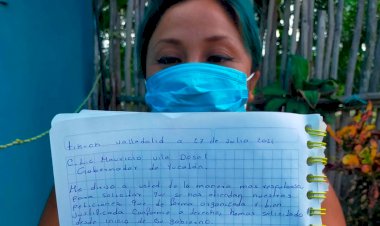 valladolid a 27 de Julio 2021
C. Lic Mauricio vila Dosal
Gobernador de Yucatán.
Me dirijo a usted de la manera mas respetuosa
para solicitar que se nos atiendan nuestras
peticiones que de forma organizada y bien
justificada conforme a derecho, hemos solicitado
desde inicio de su gobierno.